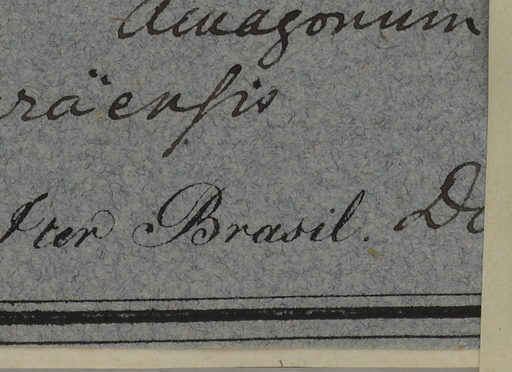 Amazonum
raënsis
Iter Brasil. D